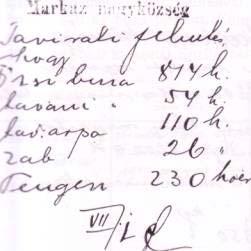 Markaz nagyközség
Távirati felhívás
hogy
Őszi buza 814 h.
tavaszi " 54 h.
tav. árpa 110 h.
zab 26 "
Tengeri 230 hold
VII/1.